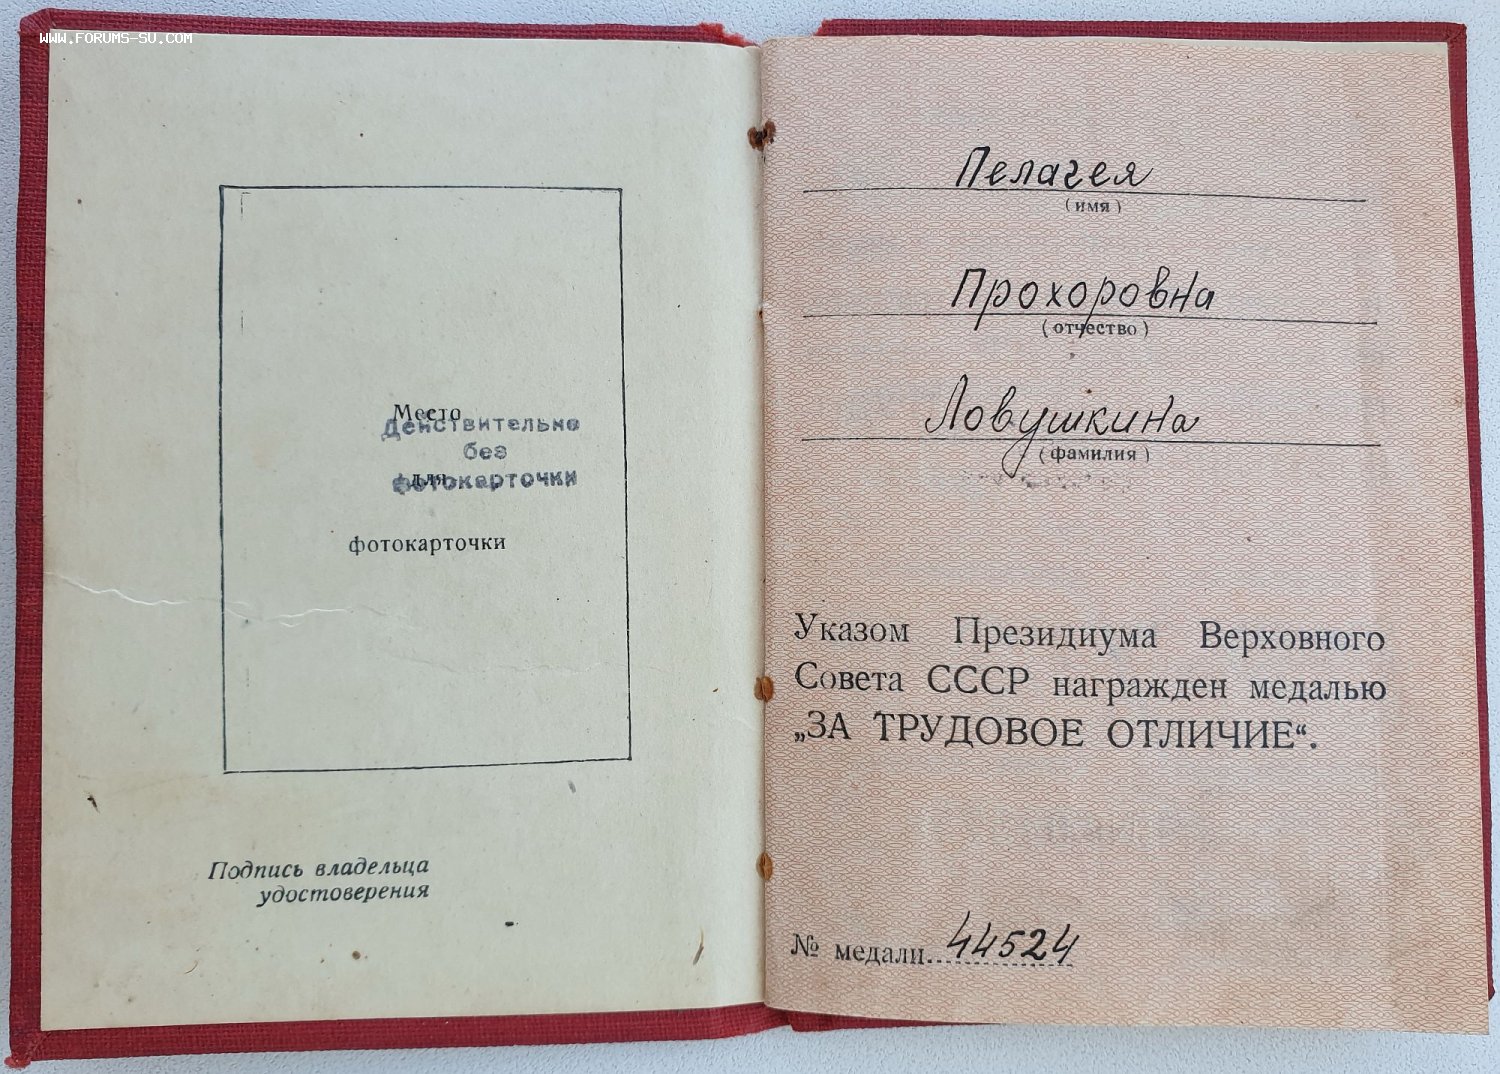 WWW.FORUMS-SU.COM
Место
Действительно
без
для
фотокарточки
фотокарточки
Подпись владельца
удостоверения
Пелагея
(имя)
Прохоровна
(отчество)
Ловушкина
(фамилия)
Указом Президиума Верховного
Совета СССР награжден медалью
„ЗА ТРУДОВОЕ ОТЛИЧИЕ“.
№ медали 44524